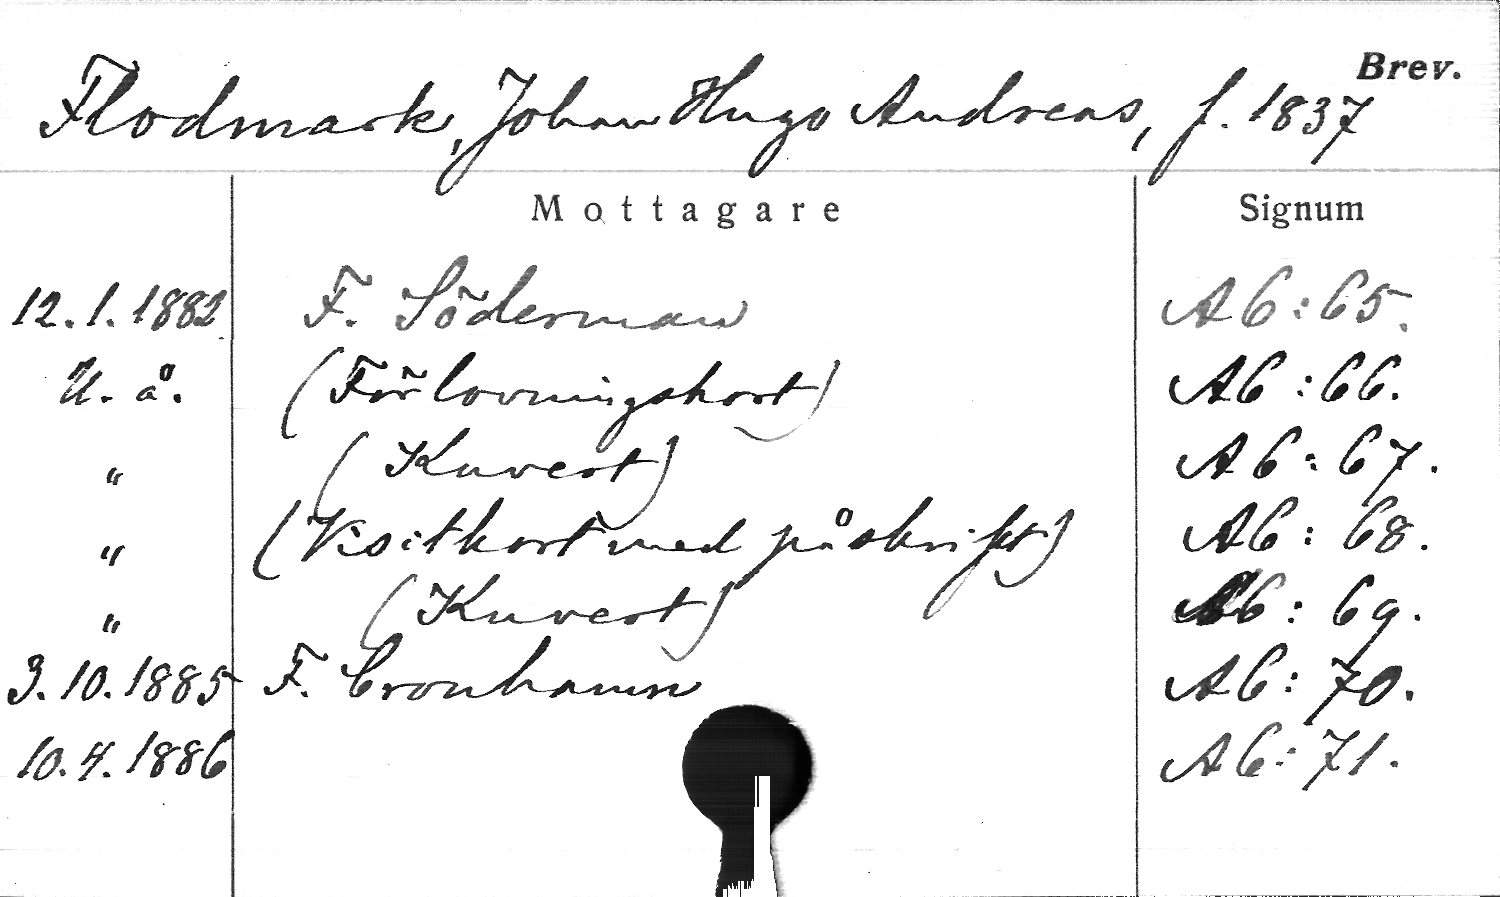 Brev.
Flodmark, Johan Hugo Andreas, f. 1837
Mottagare Signum
12.1.1882 F. Söderman A6:65.
U. å. (Förlovningskort) A6:66.
" (Kuvert) A6:67.
" (Visitkort med påskrift) A6:68.
" (Kuvert) A6:69.
3.10.1885 F. Cronhamn A6:70.
10.4.1886 A6:71.